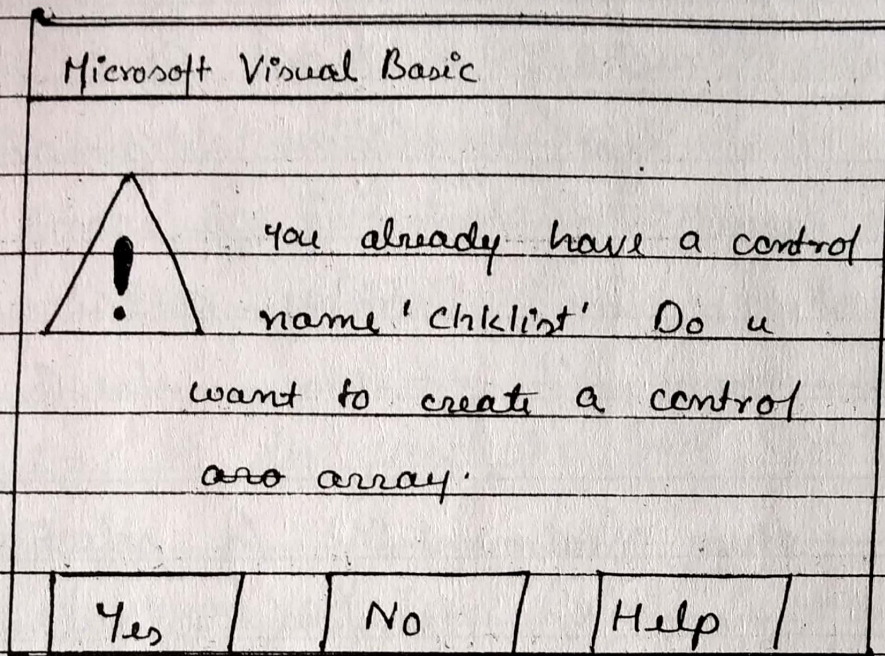 Microsoft Visual Basic
You already have a control
name 'Chklist' Do u
want to create a control
aro array.
Yes No Help